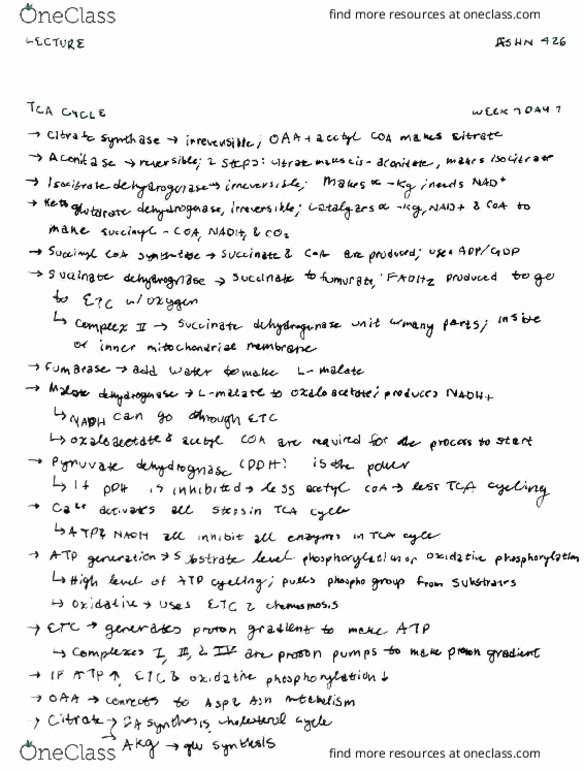 OneClass
find more resources at oneclass.com
LECTURE
ASHN 426
TCA CYCLE
WEEK 7 DAY 1
→ Citrate synthase → irreversible; OAA + acetyl COA makes citrate
→ Aconitase → reversible; 2 steps: citrate makes cis-aconitate, makes isocitrate
→ Isocitrate dehydrogenase → irreversible; Makes α-Kg; needs NAD+
→ Keto glutarate dehydrogenase, irreversible; α-Kg, NAD+ & COA to
make succinyl-COA, NADH, & CO2
→ Succinyl COA → Succinate & COA are produced; uses ADP/GDP
→ Succinate dehydrogenase → Succinate to fumurate, FADH2 produced to go
to ETC w/ oxygen
↳ Complex II → Succinate dehydrogenase unit w/ many parts; inside
or inner mitochondrial membrane
→ Fumarase → add water to make L-malate
→ Malate dehydrogenase → L-malate to oxaloacetate; produces NADH+
↳ NADH can go through ETC
↳ oxaloacetate & acetyl COA are required for the process to start
→ Pyruvate dehydrogenase (PDH): is the power
↳ If PDH is inhibited → less acetyl COA → less TCA cycling
→ activates all steps in TCA cycle
↳ ATP & NADH all inhibit all enzymes in TCA cycle
→ ATP generation → Substrate level phosphorylation or oxidative phosphorylation
↳ High level of ATP cycling; pulls phospho group from substrates
↳ Oxidative → uses ETC & chemosmosis
→ ETC → generates proton gradient to make ATP
↳ Complexes I, III, & IV are proton pumps to make proton gradient
→ IF ATP ↑, ETC & oxidative phosphorylation ↓
→ OAA → connects to Asp & Asn metabolism
→ Citrate → FA synthesis, cholesterol cycle
→ AKg → glu synthesis
OneClass
find more resources at oneclass.com